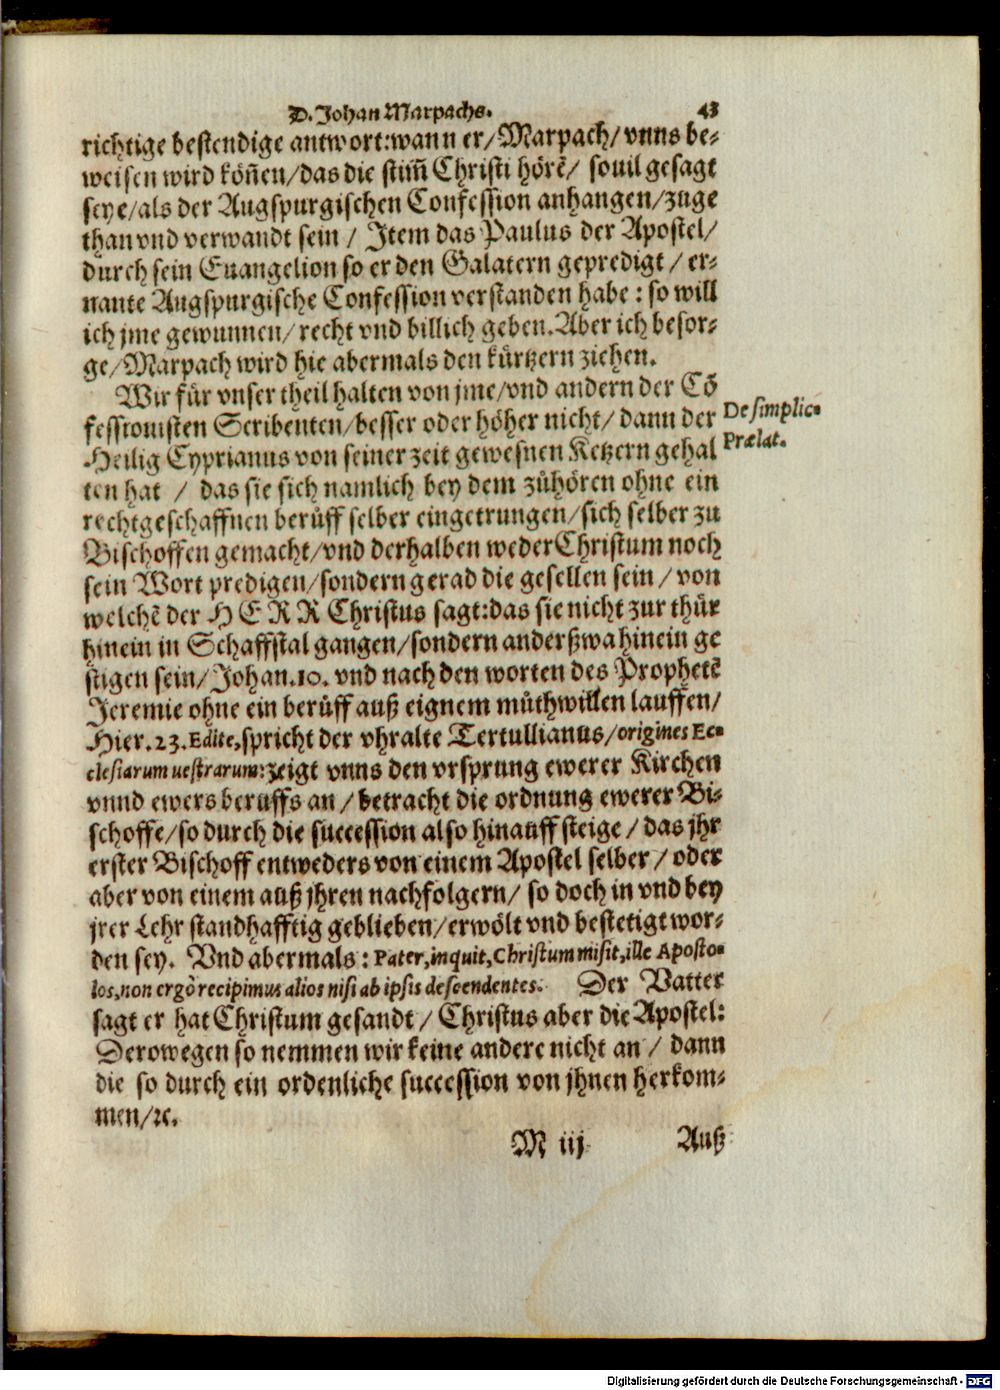 D. Johan Marpachs. 43
richtige bestendige antwort: wann er/ Marpach/ vnns be-
weisen wird köñen/ das die stim̃ Christi hörẽ/ souil gesagt
seye/ als der Augspurgischen Confession anhangen/ zuge
than vnd verwandt sein / Item das Paulus der Apostel/
durch sein Euangelion so er den Galatern gepredigt / er-
nante Augspurgische Confession verstanden habe : so will
ich jme gewunnen/ recht vnd billich geben. Aber ich besor-
ge/ Marpach wird hie abermals den kürtzern ziehen.
Wir für vnser theil halten von jme/ vnd andern der Cõ
fessionisten Scribenten/ besser oder höher nicht/ dann der
De simplic.
Prælat.
Heilig Cyprianus von seiner zeit gewesnen Ketzern gehal
ten hat / das sie sich namlich bey dem zůhören ohne ein
rechtgeschaffnen berůff selber eingetrungen/ sich selber zu
Bischoffen gemacht/ vnd derhalben weder Christum noch
sein Wort predigen/ sondern gerad die gesellen sein / von
welchẽ der HERR Christus sagt: das sie nicht zur thür
hinein in Schaffstal gangen/ sondern anderßwa hinein ge
stigen sein/ Johan. 10. vnd nach den worten des Prophetẽ
Jeremie ohne ein berůff auß eignem můthwillen lauffen/
Hier. 23. Edite, spricht der vhralte Tertullianus/ origines Ec-
clesiarum uestrarum: zeigt vnns den vrsprung ewerer Kirchen
vnnd ewers berůffs an / betracht die ordnung ewerer Bi-
schoffe/ so durch die succession also hinauff steige / das jhr
erster Bischoff entweders von einem Apostel selber / oder
aber von einem auß jhren nachfolgern/ so doch in vnd bey
jrer Lehr standhafftig geblieben/ erwölt vnd bestetigt wor-
den sey. Vnd abermals : Pater, inquit, Christum misit, ille Aposto-
los, non ergò recipimus alios nisi ab ipsis descendentes. Der Vatter
sagt er hat Christum gesandt / Christus aber die Apostel:
Derowegen so nemmen wir keine andere nicht an / dann
die so durch ein ordenliche succession von jhnen herkom-
men/ ꝛc.
M iij Auß
Digitalisierung gefördert durch die Deutsche Forschungsgemeinschaft - DFG